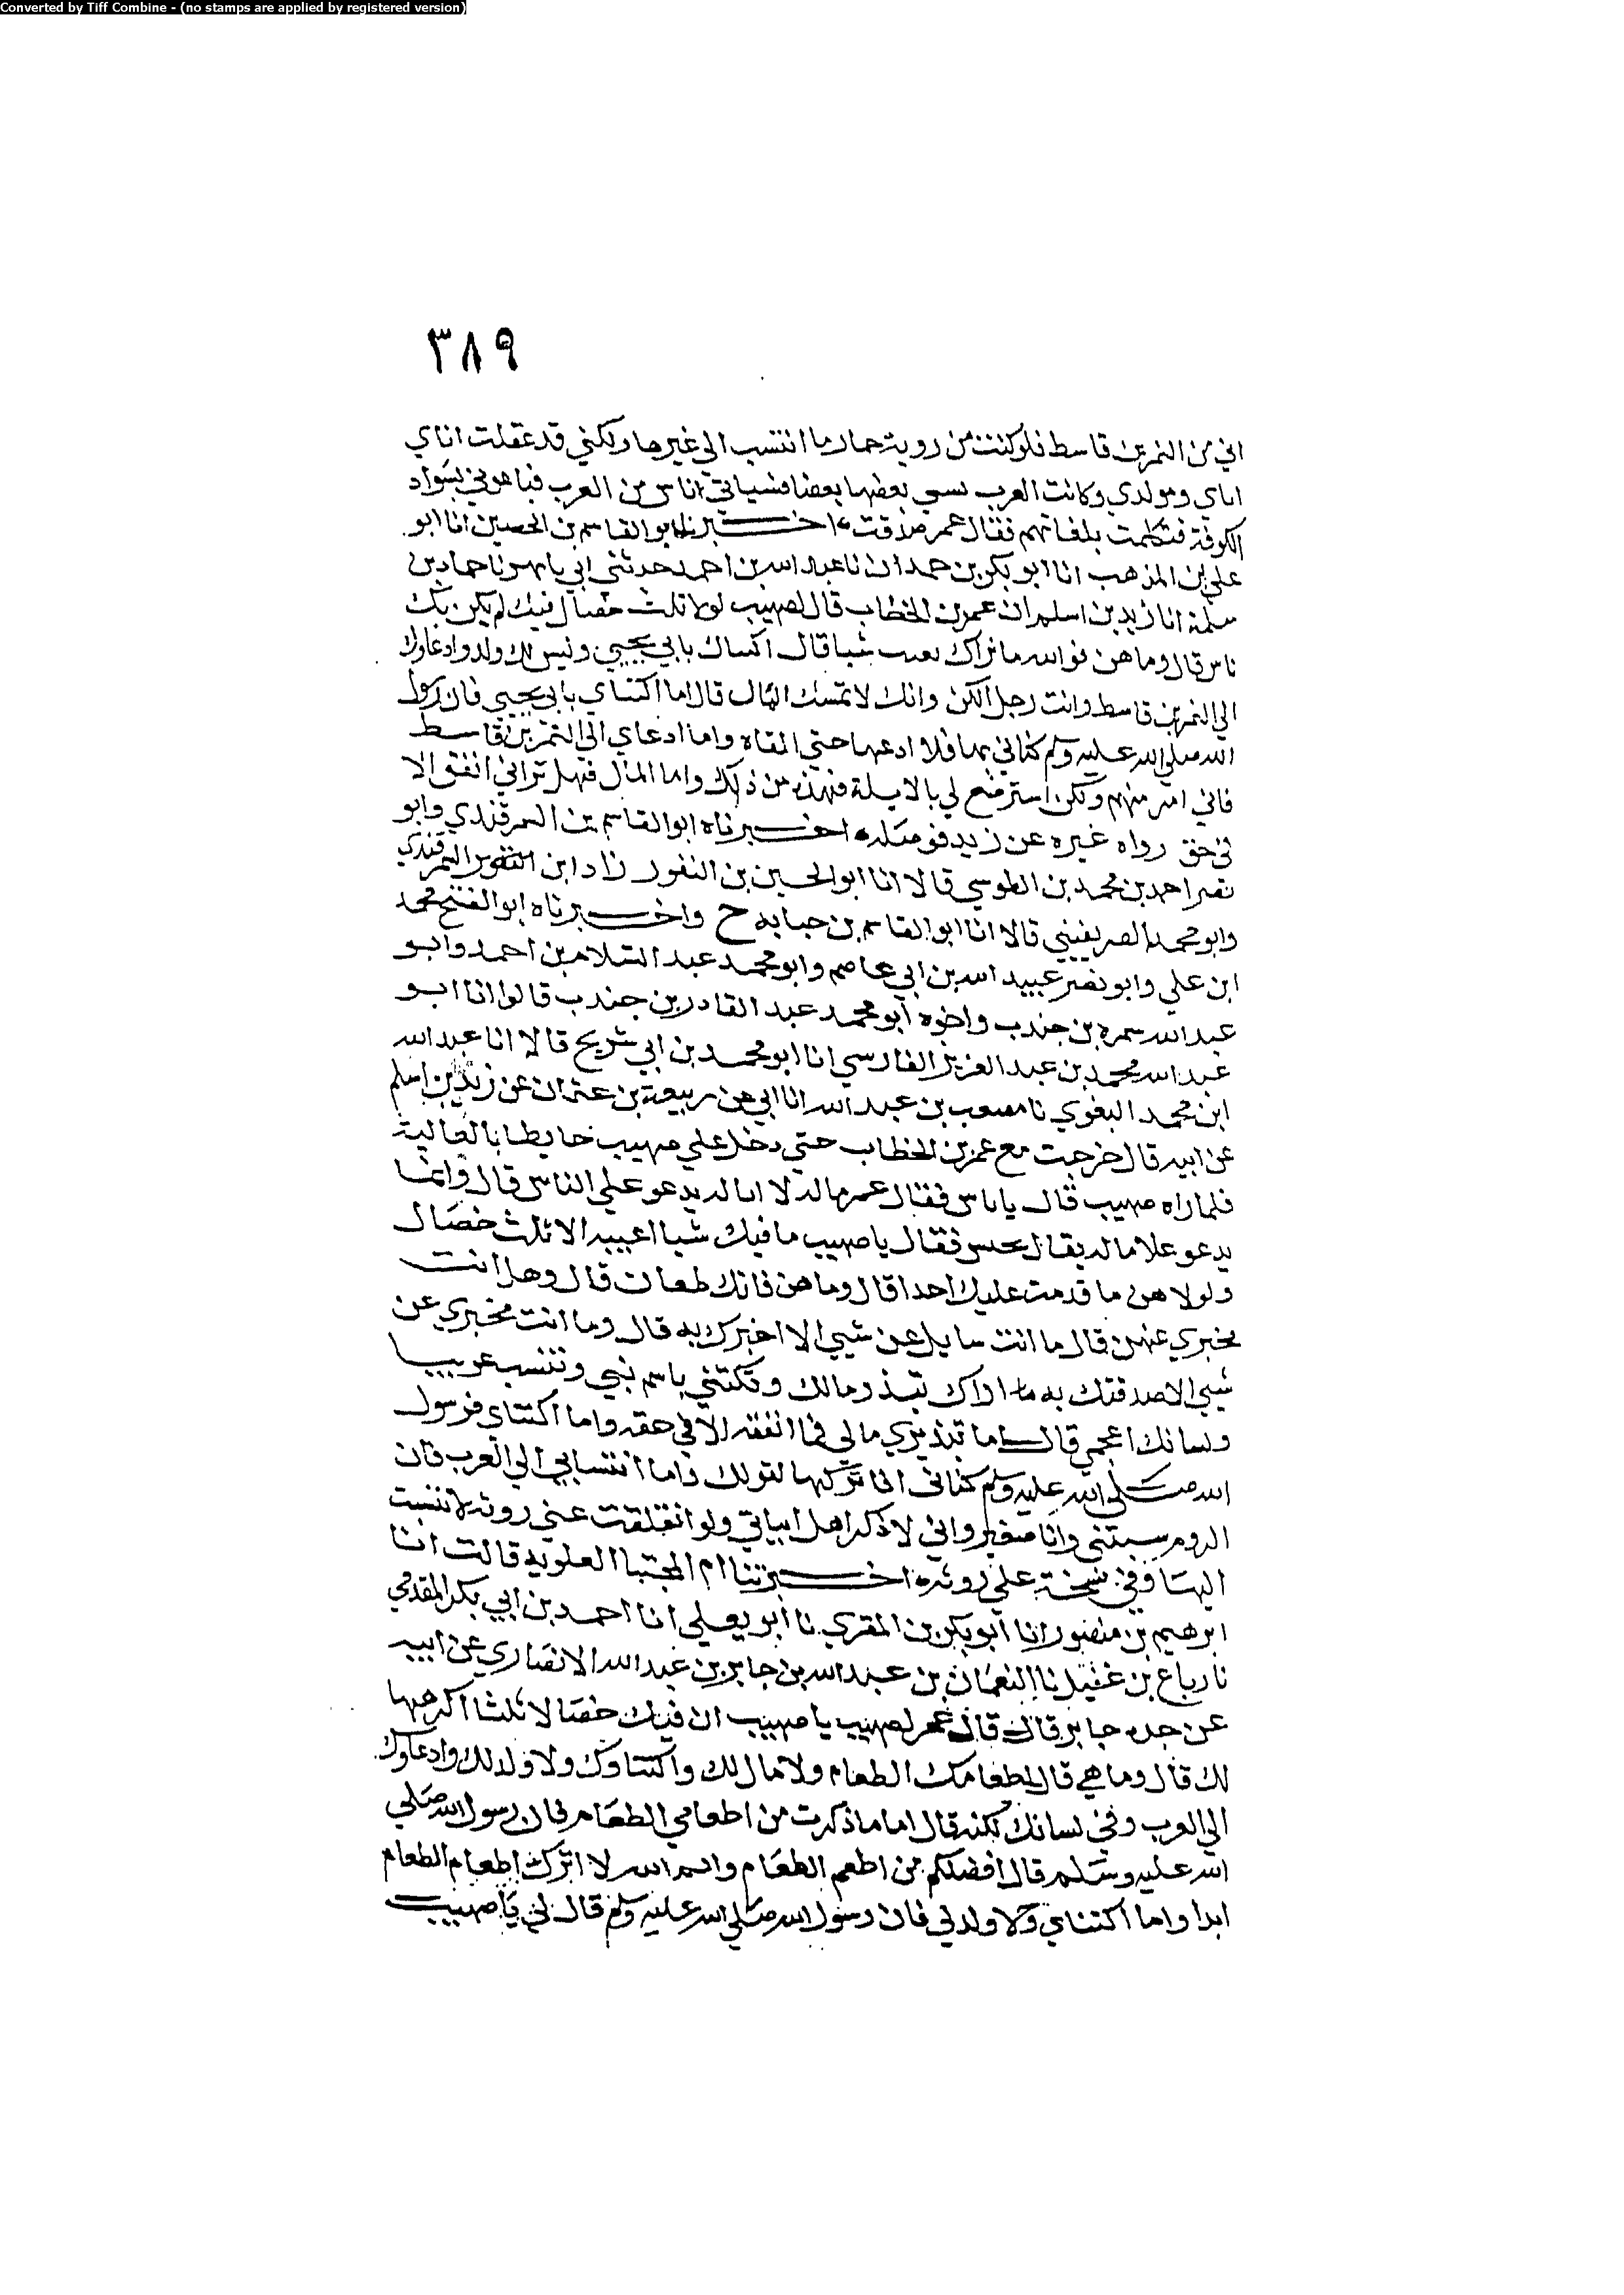 Converted by Tiff Combine - (no stamps are applied by registered version)
٣٨٩
اني من النمر بن قاسط فلو كنت من روثة حمار ما انتسب الى غيرها ولكني قد عقلت اناي
اباي ومولدي وكانت العرب تسبي بعضها بعضا فسباني اناس من العرب فباعوني بسواد
الكوفة فتكلمت بلغاتهم فقال عمر صدقت اخبرنا ابو القاسم بن الحصين انا ابو
علي بن المذهب انا ابو بكر بن حمدان نا عبد الله بن احمد حدثني ابي نا بهز نا حماد بن
سلمة انا زيد بن اسلم ان عمر بن الخطاب قال لصهيب لولا ثلث خصال فيك لم يكن بك
باس قال وما هن فوالله ما نراك تعيب شيا قال اكتناك بابي يحيى وليس لك ولد وادعاوك
الي النمر بن قاسط وانت رجل الكن وانك لا تمسك المال قال اما اكتناي بابي يحيى فان رسول
الله صلى الله عليه وسلم كناني بها فلا ادعها حتي القاه واما ادعاي الي النمر بن قاسط
فاني امر منهم ولكن استرضع لي بالايلة فهذه من ذلك واما المال فهل تراني انفق الا
في حق رواه غيره عن زيد فوصله اخبرناه ابو القاسم بن السمرقندي وابو
نصر احمد بن محمد بن الطوسي قالا انا ابو الحسين بن النقور زاد ابن السمرقندي
وابو محمد الصريفيني قالا انا ابو القاسم بن حبابه ح واخبرناه ابو الفتح محمد
ابن علي وابو نصر عبيد الله بن ابي عاصم وابو محمد عبد السلام بن احمد وابو
عبد الله سمره بن جندب واخوه ابو محمد عبد القادر بن جندب قالوا انا ابو
عبد الله محمد بن عبد العزيز الفارسي انا ابو محمد بن ابي شريح قالا انا عبد الله
ابن محمد البغوي نا مصعب بن عبد الله انا ابي عن ربيعة بن عثمان عن زيد بن اسلم
عن ابيه قال خرجت مع عمر بن الخطاب حتي دخل علي صهيب حايطا بالعالية
فلما راه صهيب قال ياناس فقال عمر ماله لا ابا له يدعو علي الناس قال وانما
يدعو غلاما له يقال يحنس فقال ياصهيب ما فيك شيا اعيبه الا ثلث خصال
ولولا هن ما قدمت عليك احدا قال وما هن فانك طعان قال وهل انت
مخبري عنهن قال ما انت سايلي عن شيي الا اخبرك به قال وما انت مخبري عن
شيي الا صدقتك به ما اراك تبذر مالك وتكتني باسم نبي وتنتسب عربيا
ولسانك اعجمي قال اما تبذيري مالي فما انفقه الا في حقه واما اكتناي فرسول
الله صلى الله عليه وسلم كناني انا تركها لقولك واما انتسابي الي العرب فان
الروم سبتني وانا صغير واني لاذكر اهل ابياتي ولو انفلقت عني روثة لانتسبت
اليها وفي نسخة علي روثه اخبرتنا ام المجتبا العلويه قالت انا
ابرهيم بن منصور انا ابو بكر بن المقري نا ابو يعلي انا احمد بن ابي بكر المقدمي
نا رباع بن عقيل نا النعمان بن عبد الله بن جابر بن عبد الله الانصاري عن ابيه
عن جده جابر قال قال عمر لصهيب ياصهيب ان فيك خصالا ثلثا اكرهها
لك قال وما هي قال اطعامك الطعام ولا مال لك واكتناوك ولا ولد لك وادعاوك
الي العرب وفي لسانك لكنه قال اما ما ذكرت من اطعامي الطعام فان رسول الله صلى
الله عليه وسلم قال افضلكم من اطعم الطعام وايم الله لا اترك اطعام الطعام
ابدا واما اكتناي ولا ولد لي فان رسول الله صلى الله عليه وسلم قال لي ياصهيب